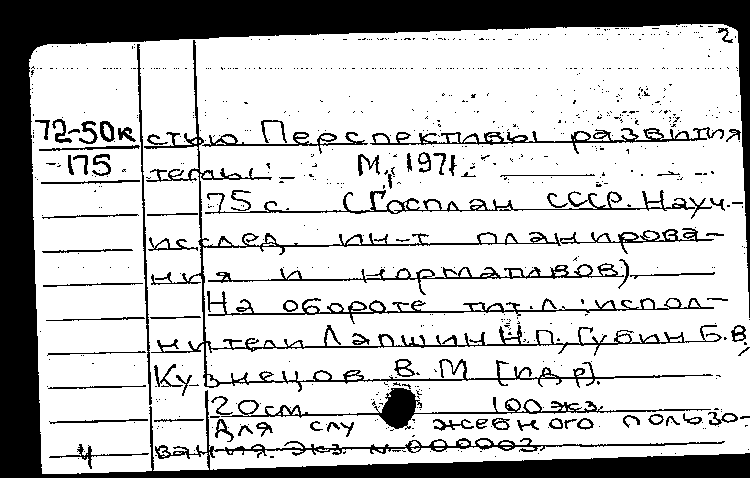 2
72-50к стью. Перспективы развития
-175 темы. М., 1971.
75 с. (Госплан СССР. Науч.-
исслед. ин-т планирова-
ния и нормативов).
На обороте тит.л.: испол-
нители Лапшин Н.П., Губин Б.В,
Кузнецов В.М [и др].
20см. 100 экз.
Для служебного пользо-
ч вания. Экз. № 000003.